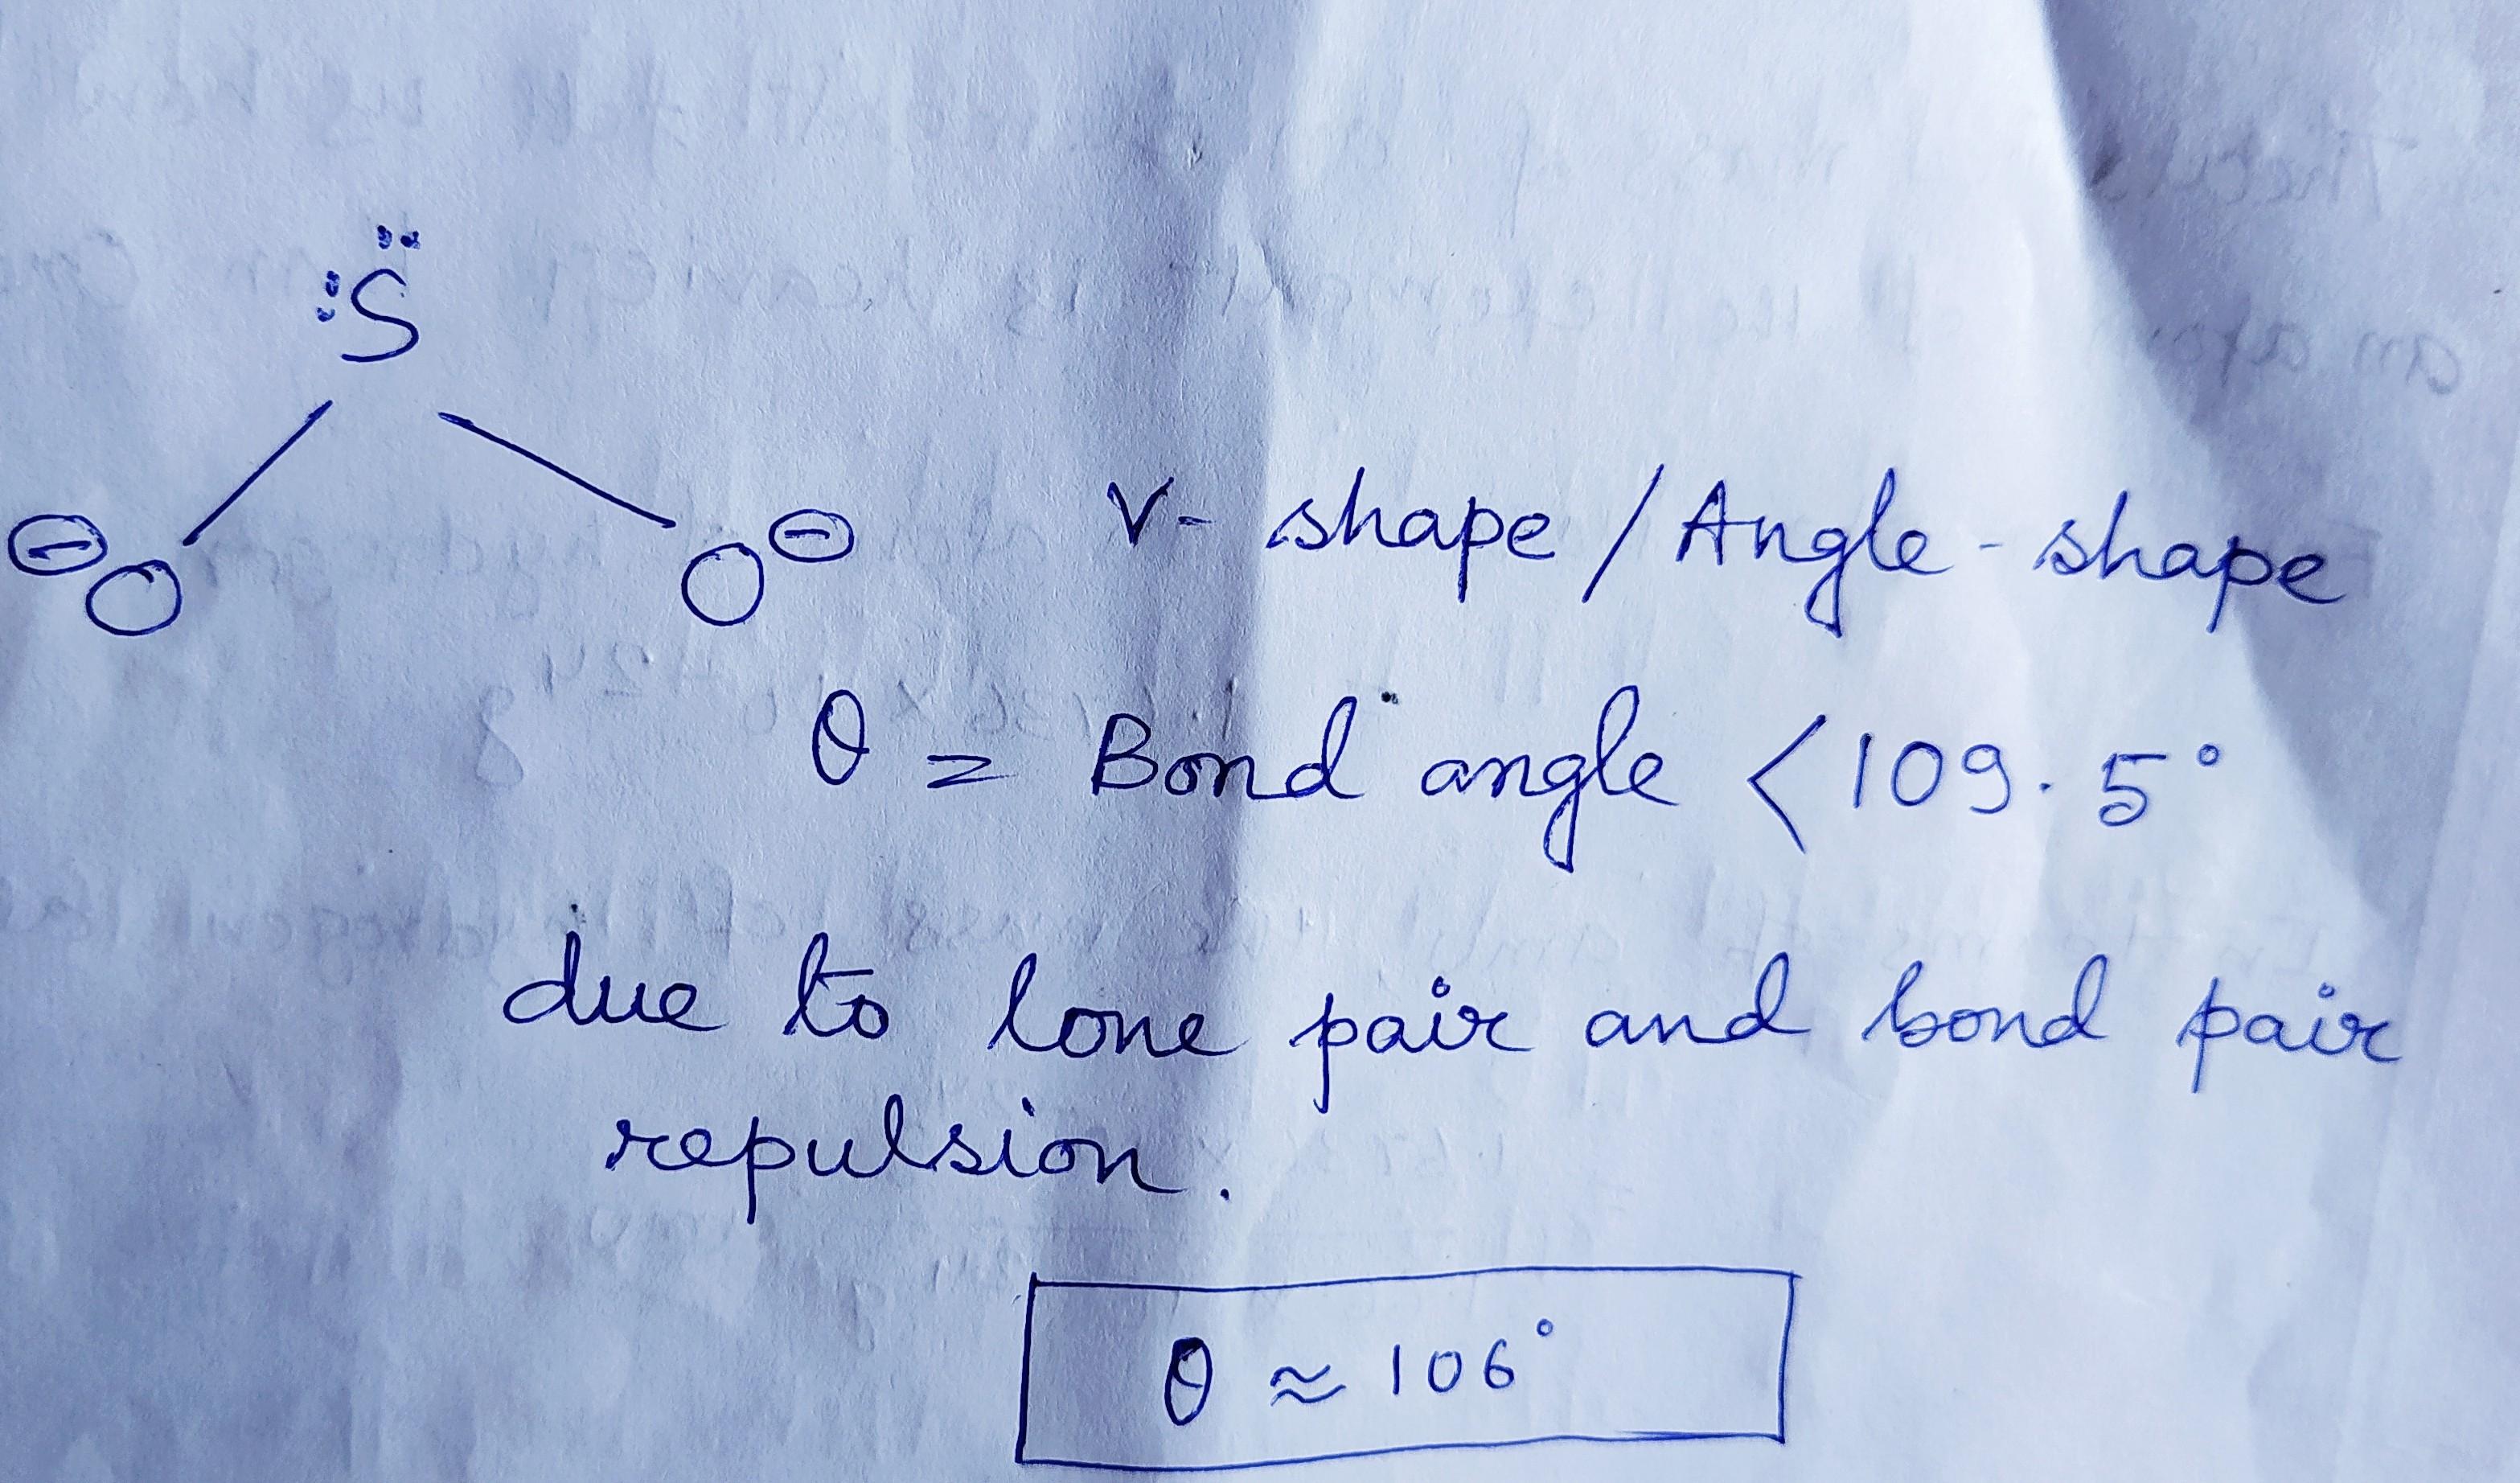 :S̈
⊖O O⊖
V- shape / Angle - shape
θ = Bond angle < 109.5°
due to lone pair and bond pair
repulsion.
θ ≈ 106°